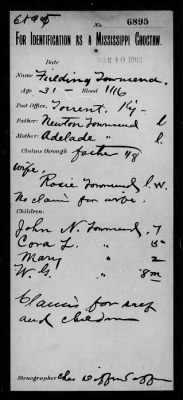 6895
No. 6895
FOR IDENTIFICATION AS A MISSISSIPPI CHOCTAW.
MAR 10 1903
Date
Name Fielding Townsend.
Age 31 - Blood 1/16
Post Office: Torrent, Ky-
Father: Newton Townsend l
Mother: Adelade " l.
Claims through father 1/8
wife.
Rosie Townsend l.w.
No claim for wife.
Children:
John N. Townsend, 7
Cora L. " 5
Mary " 2
W. G. " 8m
Claims for self
and children
Stenographer Chas